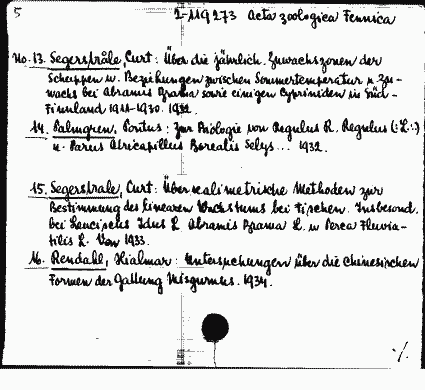 5 2-119273 Acta zoologica Fennica
No. 13. Segerstråle, Curt: Über die jährlich. Zuwachszonen der
Schuppen u. Beziehungen zwischen Sommertemperatur u. Zu-
wachs bei Abramis Brama sowie einigen Cypriniden in Süd-
Finnland 1911-1930. 1932.
14. Palmgren, Pontus: Zur Biologie von Regulus R. Regulus (:L:)
u. Parus Atricapillus Borealis Selys... 1932.
15. Segerstrale, Curt: Über kalimetrische Methoden zur
Bestimmung des linearen Wachstums bei Fischen. Insbesond.
bei Leuciscus Idus L. Abramis Brama L. u Perca Fluvia-
tilis L. Von 1933.
16. Rendahl, Hialmar: Untersuchungen über die Chinesischen
Formen der Gattung Misgurnus. 1934.
./.